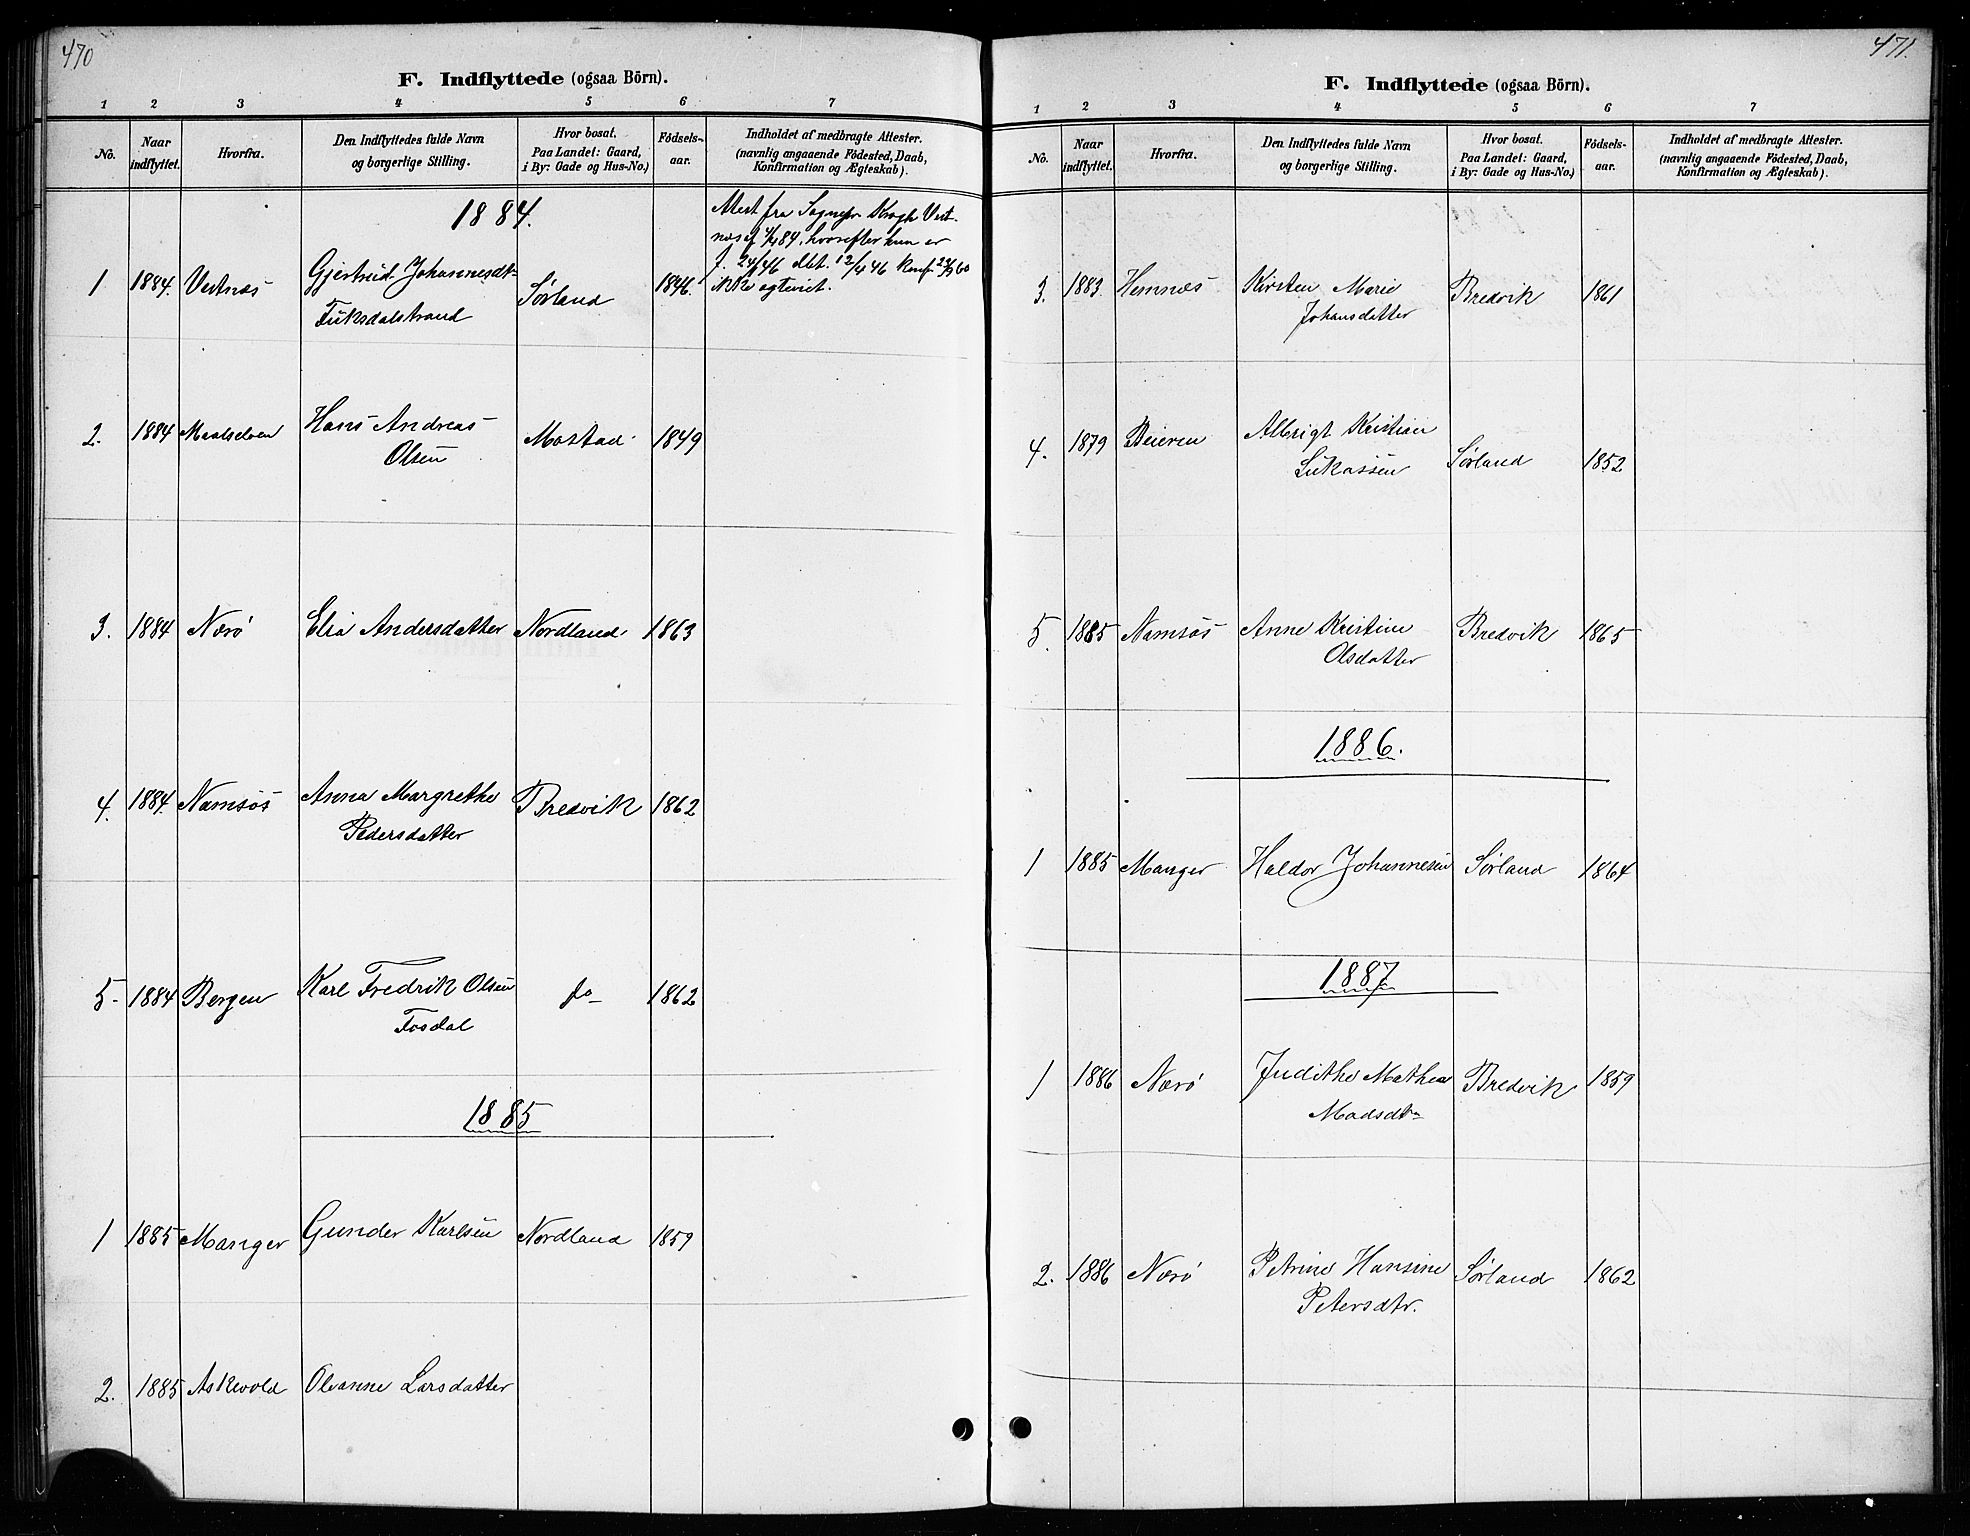 470
F. Indflyttede (ogsaa Börn).
1 2 3 4 5 6 7
No. Naar indflyttet. Hvorfra. Den Indflyttedes fulde Navn og borgerlige Stilling. Hvor bosat. Paa Landet: Gaard, i By: Gade og Hus-No.) Födsels-aar. Indholdet af medbragte Attester. (navnlig angaaende Födested, Daab, Konfirmation og Ægteskab).
1884.
1 1884. Vestnæs Gjertrud Johannesdt Sørland 1846. Attest fra Sognepr Krogh Vest-
Fiksdalstrand
næs af 84, hvorefter hun er
f. 46 dbt. 12/4 46 Konf. 60
ikke egteviet.
2. 1884 Maalselven Hans Andreas Mostad 1849
Olsen
3. 1884 Nærö Elia Andersdatter Nordland 1863
4. 1884. Namsos Anna Margrethe Bredvik 1862
Pedersdatter
5- 1884 Bergen Karl Fredrik Olsen do 1862
Tosdal
1885
1 1885 Manger Gunder Karlsen Nordland 1859
2. 1885 Askevold Olvanne Larsdatter
471.
F. Indflyttede (ogsaa Börn).
1 2 3 4 5 6 7
No. Naar indflyttet. Hvorfra. Den Indflyttedes fulde Navn og borgerlige Stilling. Hvor bosat. Paa Landet: Gaard, i By: Gade og Hus-No.) Födsels-aar. Indholdet af medbragte Attester. (navnlig angaaende Födested, Daab, Konfirmation og Ægteskab).
3. 1883. Hemnæs Kirsten Marie Bredvik 1861
Johansdatter
4. 1879 Beieren Albrigt Kristian Sørland 1852
Lukassen
5. 1885 Namsos Anne Kristine Bredvik 1865
Olsdatter
1886.
1 1885 Manger Haldor Johannesen Sørland 1864
1887
1 1886 Nærö Judithe Mathea Bredvik 1859
Madsdtr
2. 1886 Nærö Petrine Hansine Sørland 1862
Petersdtr.